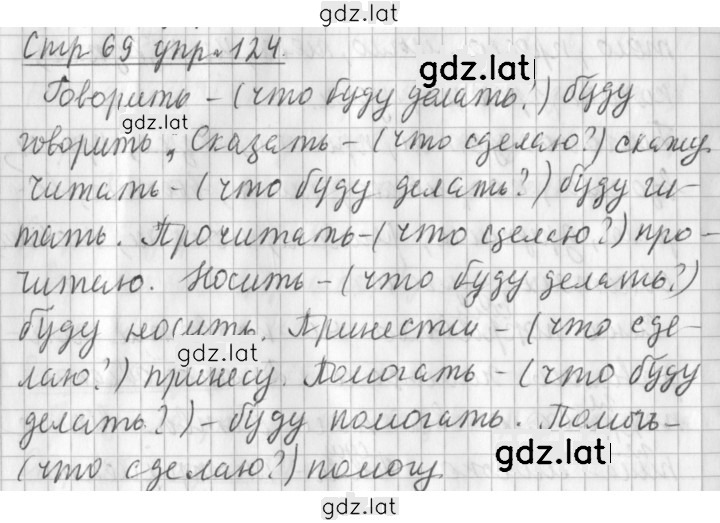 gdz.lat
Стр 69 упр. 124.
gdz.lat
Говорить – (что буду делать?) буду
gdz.lat
говорить, Сказать – (что сделаю?) скажу.
Читать – (что буду делать?) буду чи-
тать. Прочитать – (что сделаю?) про-
читаю. Носить – (что буду делать?)
буду носить. Принести – (что сде-
gdz.lat
лаю?) принесу. Помогать – (что буду
делать?) – буду помогать. Помочь –
gdz.lat
(что сделаю?) помогу.
gdz.lat